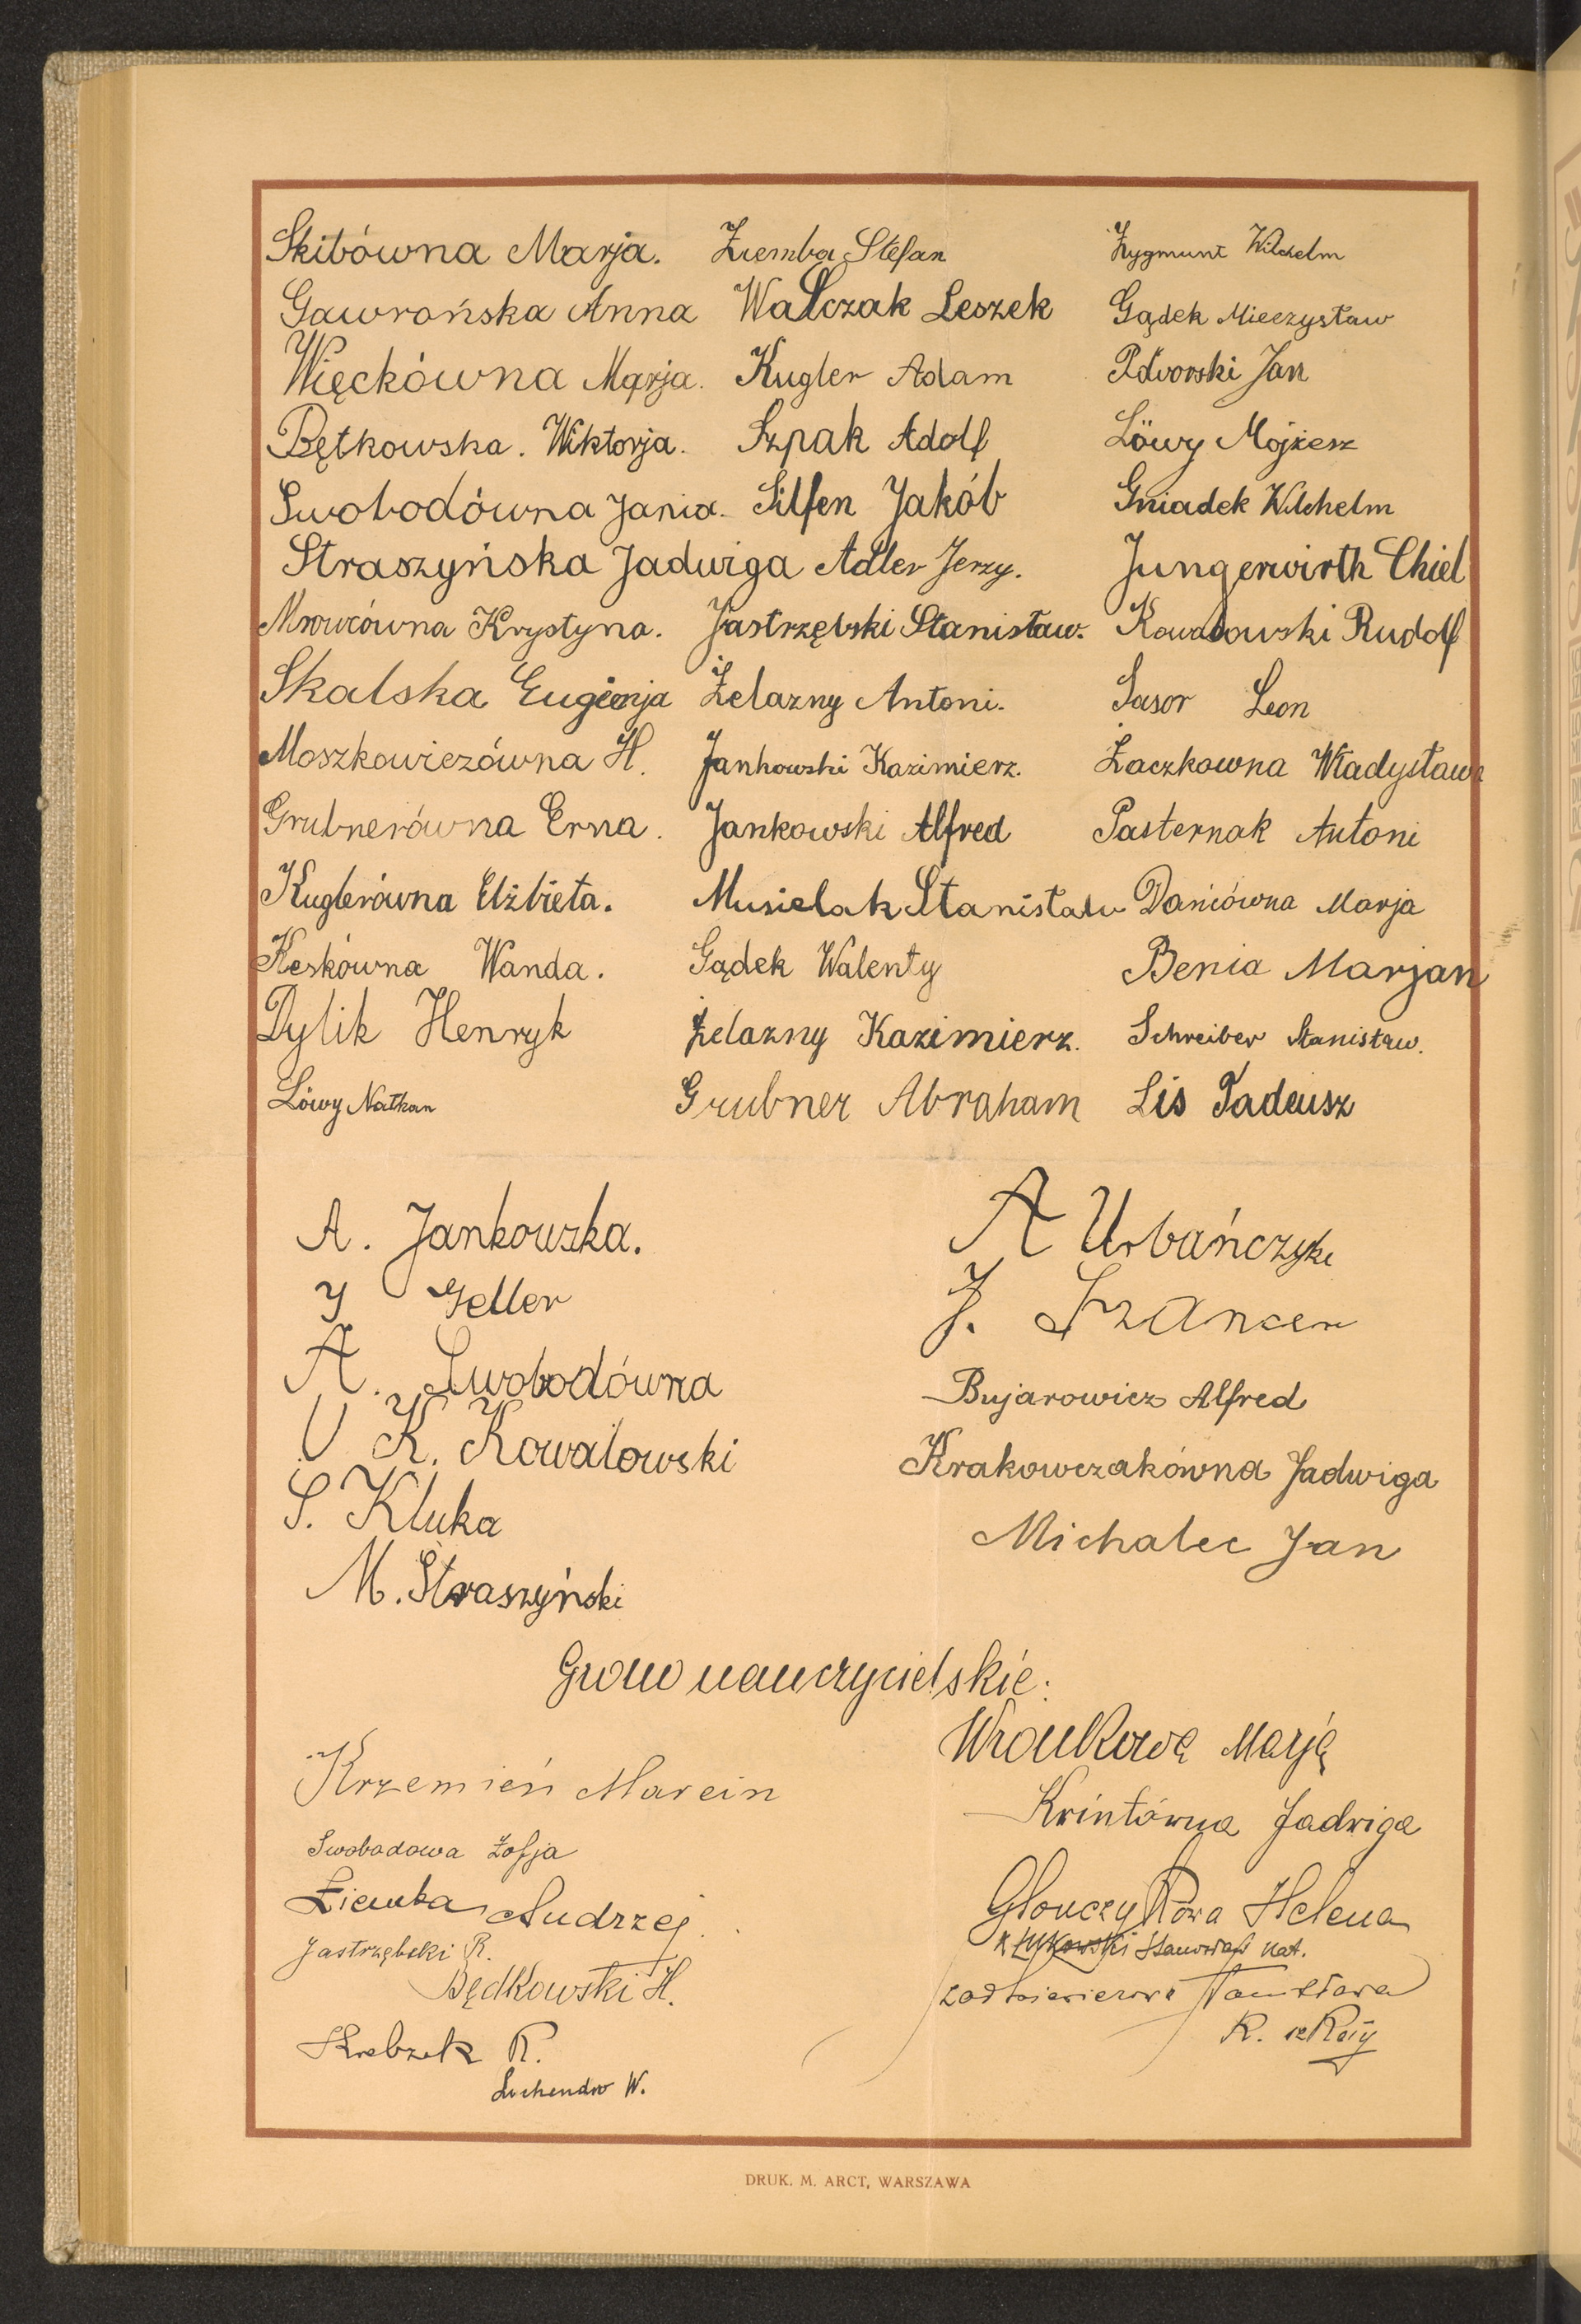 Skibówna Marja. Ziemba Stefan Zygmunt Wilchelm
Gawrońska Anna Walczak Leszek Gądek Mieczysław
Więckówna Marja. Kugler Adam Pdworski Jan
Bętkowska. Wiktorja. Szpak Adolf Löwy Mojżesz
Swobodówna Jania. Silfen Jakób Gniadek Wilchelm
Straszyńska Jadwiga Adler Jerzy. Jungerwirth Chiel
Mrowcówna Krystyna. Jastrzębski Stanisław. Kowalowski Rudolf
Skalska Eugienja Żelazny Antoni. Sasor Leon
Moszkowiczówna H. Jankowski Kazimierz. Żaczkowna Władysława
Grubnerówna Erna. Jankowski Alfred Pasternak Antoni
Kuglerówna Elżbieta. Musielak Stanisław Daniówna Marja
Keskówna Wanda. Gądek Walenty Benia Marjan
Dylik Henryk Żelazny Kazimierz. Schreiber Stanisław.
Löwy Natkan Grubner Abraham Lis Tadeusz
A. Jankowska. A Urbańczyk
J Geller J. Szancer
A. Swobodówna Bujarowicz Alfred
K. Kowalowski Krakowczakówna Jadwiga
S. Kluka Michalec Jan
M. Straszyński
Grono nauczycielskie:
Krzemień Marcin Wronkowa Marja
Swobodowa Zofja Krintówna Jadwiga
Ziemba Andrzej Helena
Jastrzębski R.
Będkowski H.
Skrebzek R. R.
W.
DRUK. M. ARCT, WARSZAWA